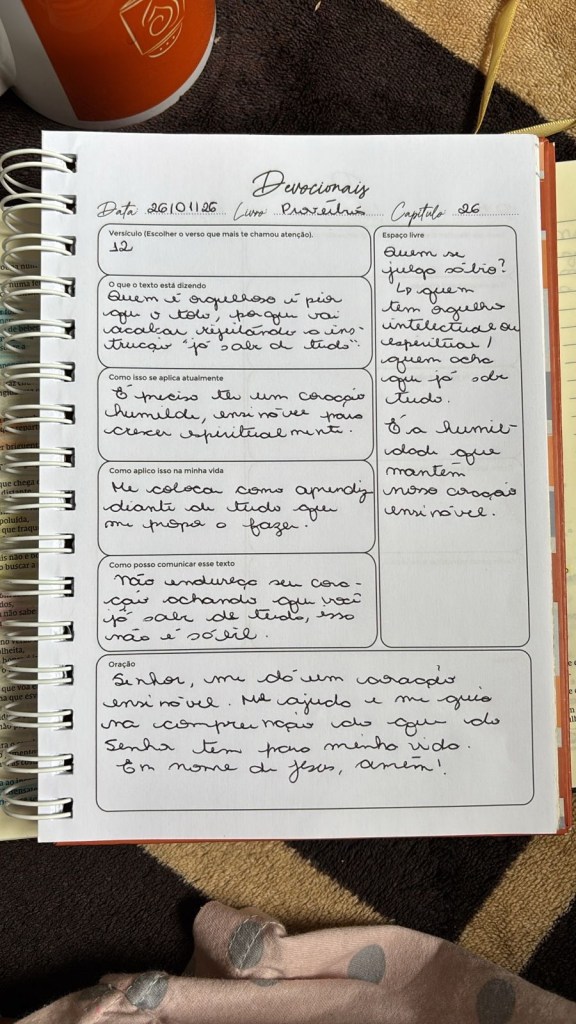 Devocionais
Data 26/01/26 Livro Provérbios Capítulo 26
Versículo (Escolher o verso que mais te chamou atenção).
12
O que o texto está dizendo
Quem é orgulhoso é pior
que o tolo, porque vai
acabar rejeitando a ins-
trução "já sabe de tudo".
Como isso se aplica atualmente
É preciso ter um coração
humilde, ensinável para
crescer espiritualmente.
Como aplico isso na minha vida
Me colocar como aprendiz
diante de tudo que
me propo a fazer.
Como posso comunicar esse texto
Não endureça seu cora-
ção achando que você
já sabe de tudo, isso
não é sábil.
Espaço livre
Quem se
julga sábio?
↳ quem
tem orgulho
intelectual ou
espiritual /
quem acha
que já sabe
tudo.
É a humil-
dade que
mantém
nosso coração
ensinável.
Oração
Senhor, me dá um coração
ensinável. Me ajuda e me guia
na compreenção do que do
Senhor tem para minha vida.
Em nome de Jesus, amém!